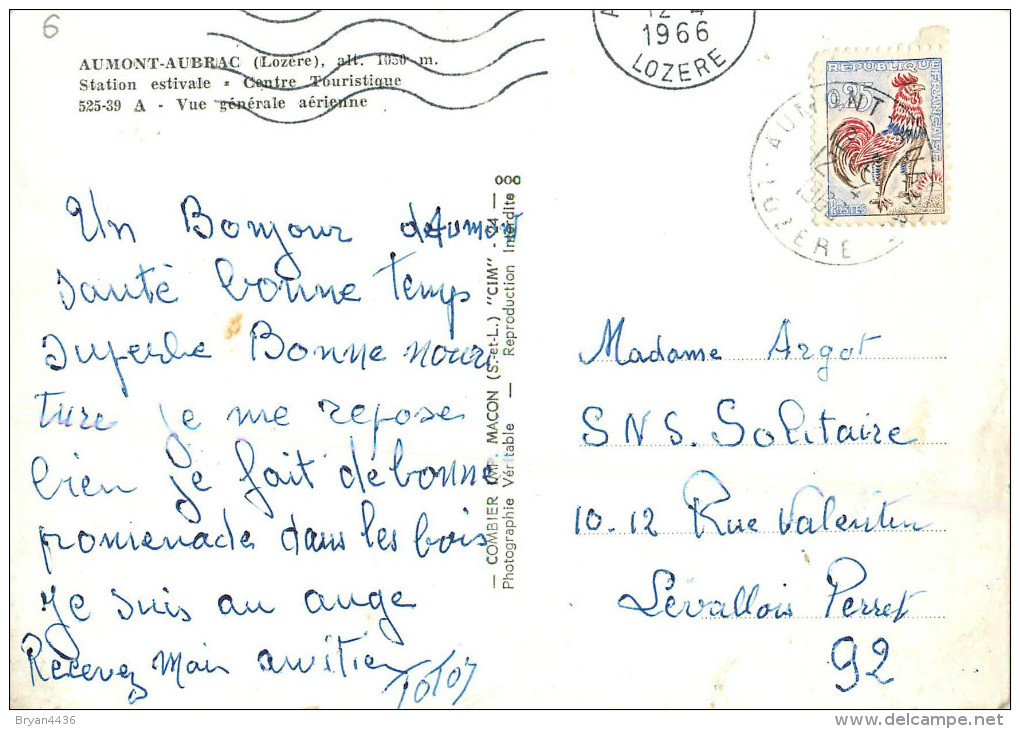 6
AUMONT-AUBRAC (Lozère), alt. 1050 m.
Station estivale - Centre Touristique
525-39 A - Vue générale aérienne
12-4
1966
LOZERE
REPUBLIQUE FRANÇAISE
0,25
POSTES
AUMONT
12-4
LOZERE
Un Bonjour d'Aumont
santé bonne temps
superbe Bonne nouri
ture je me repose
bien je fait de bonne
promenade dans les bois
je suis au ange
Recevez Mais amitier
TOTOT
— COMBIER IMP. MACON (S.-et-L.) "CIM" - 24 — ooo
Photographie Véritable — Reproduction Interdite
Madame Argot
S N S. Solitaire
10-12 Rue Valentin
Levallois Perret
92
Bryan4436
delcampe.net